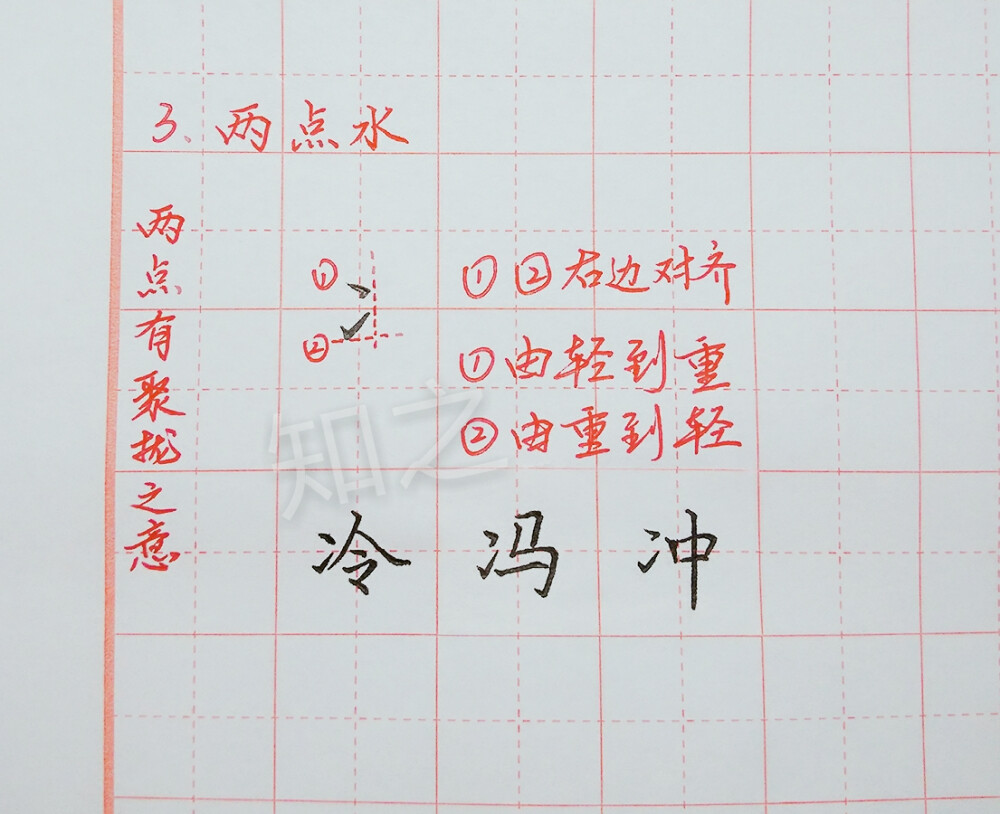 3、两点水
两点有聚拢之意
①
②
①②右边对齐
①由轻到重
②由重到轻
知之
冷 冯 冲